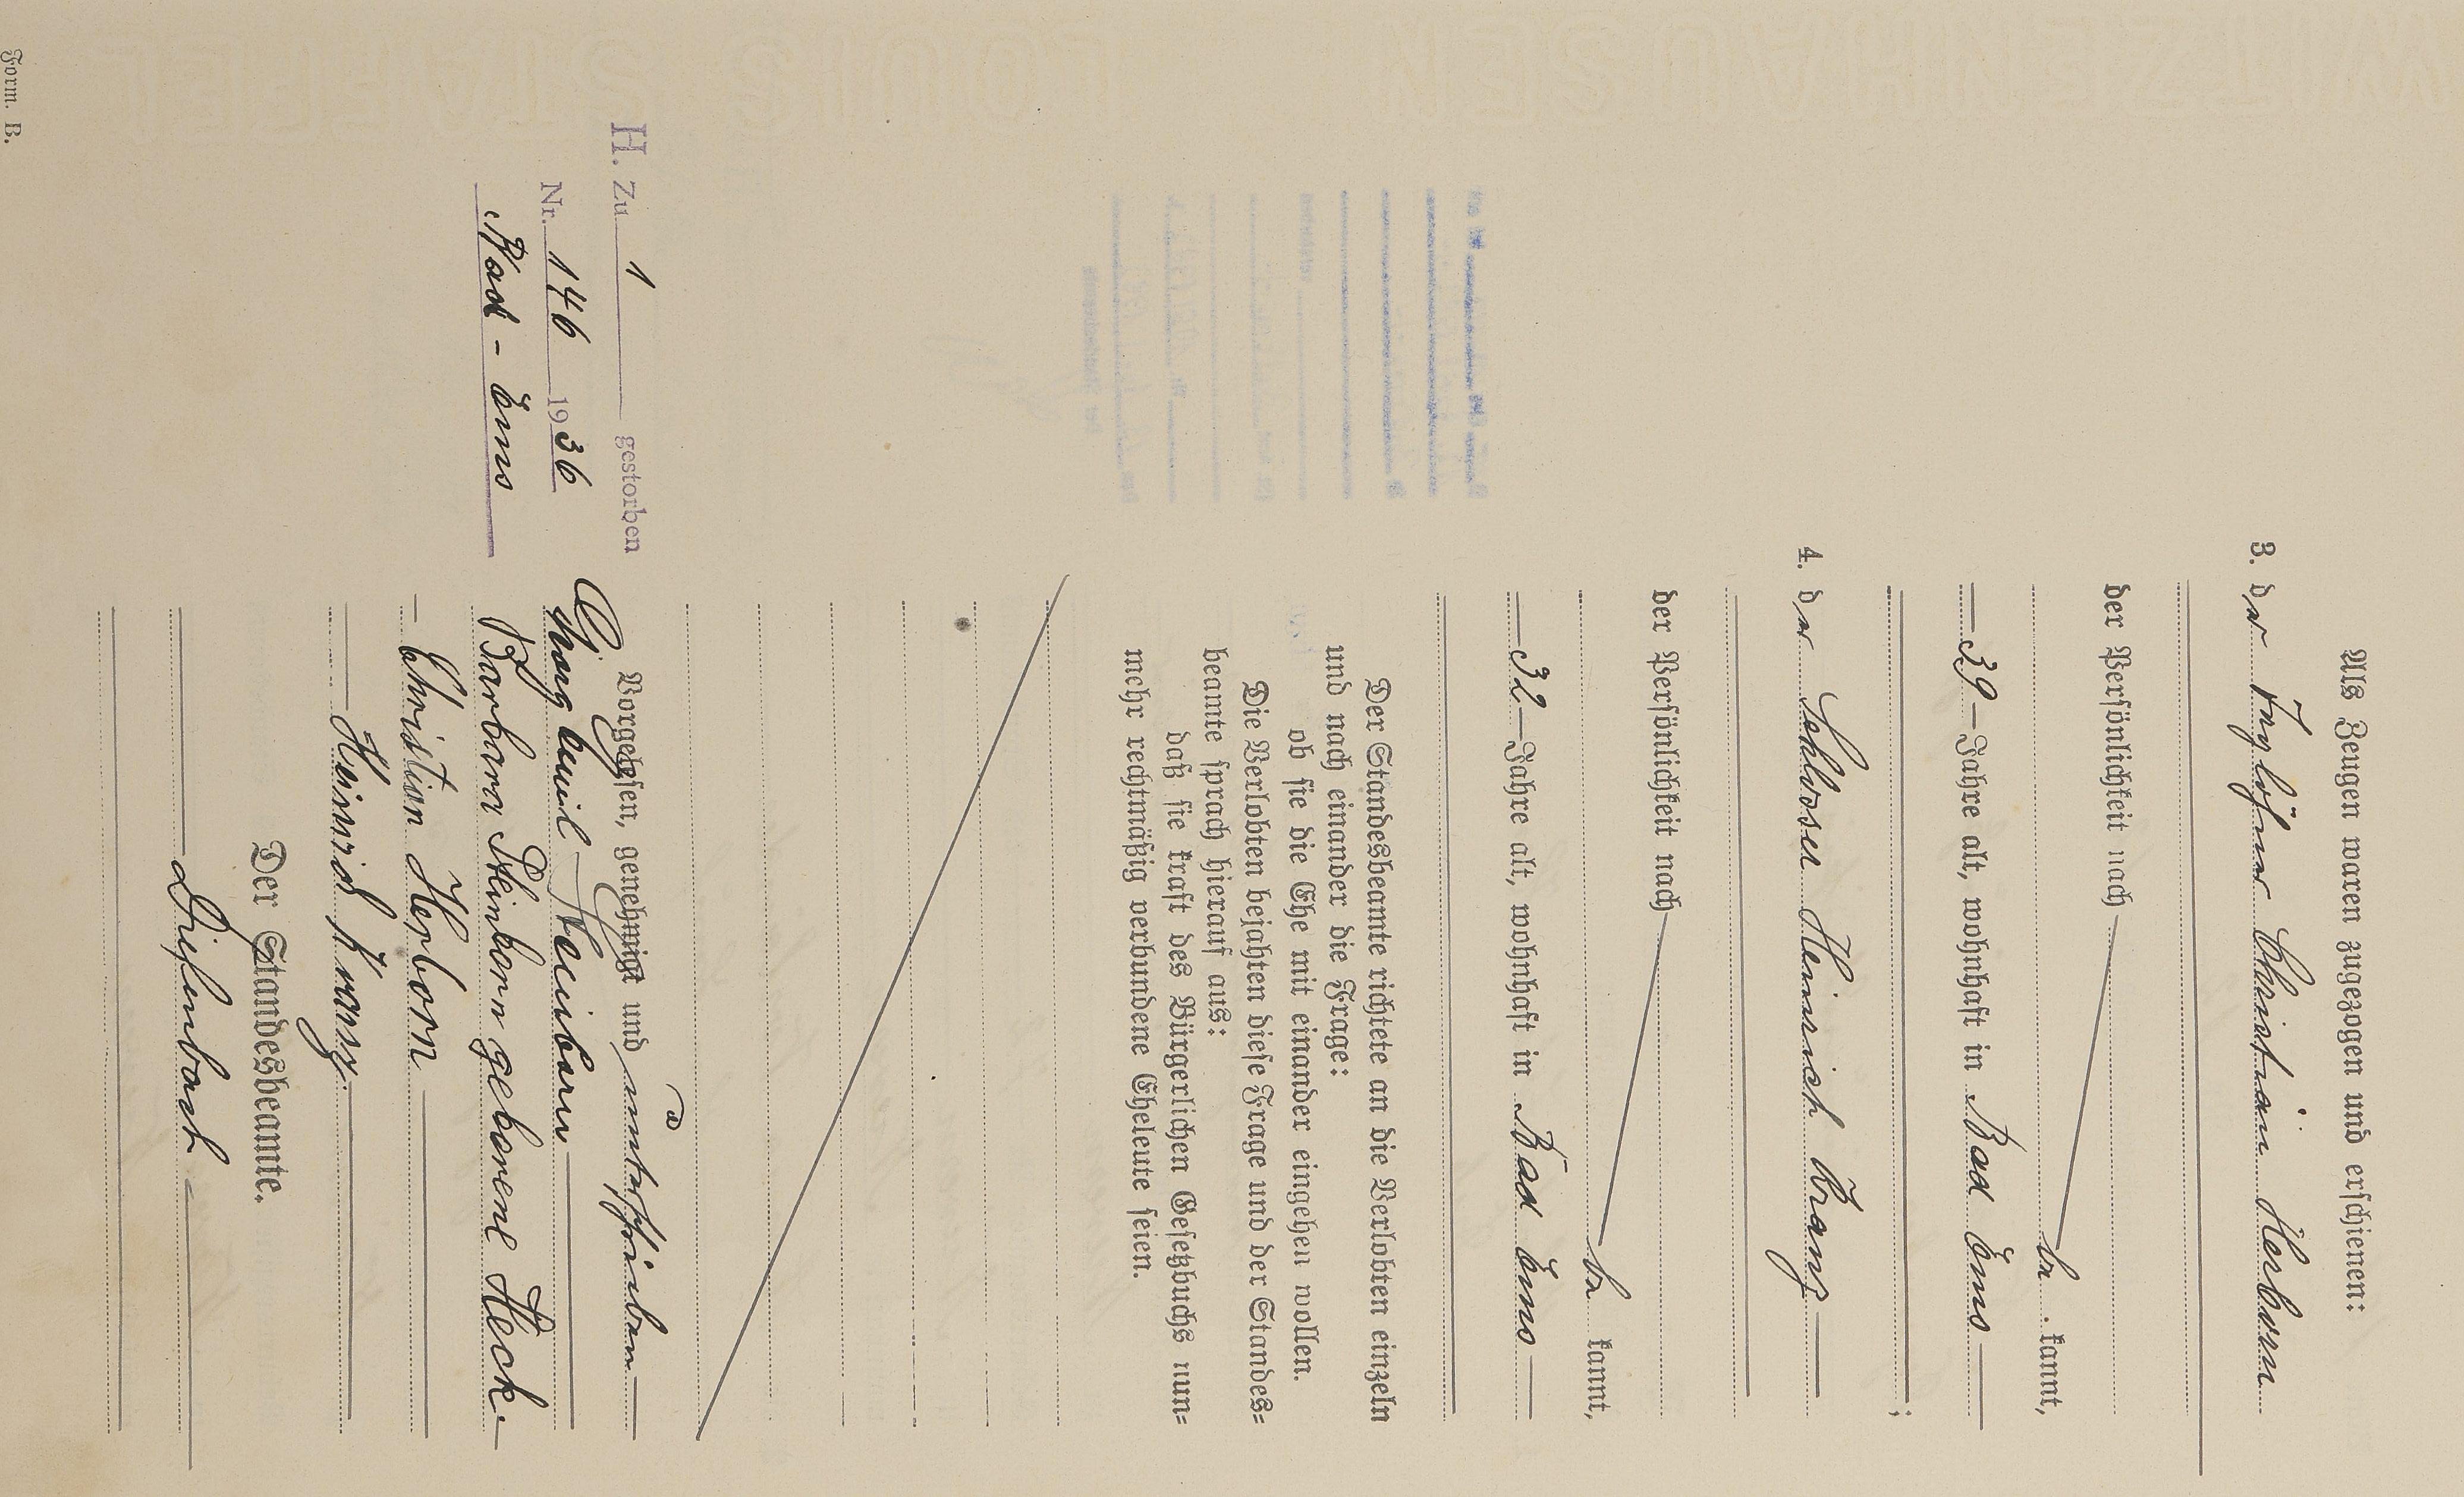 Als Zeugen waren zugezogen und erschienen:
3. der Taglöhner Christian Herborn
der Persönlichkeit nach
be kannt,
39 Jahre alt, wohnhaft in Bad Ems
;
4. der Schlosser Heinrich Kranz
der Persönlichkeit nach
be kannt,
32 Jahre alt, wohnhaft in Bad Ems
Der Standesbeamte richtete an die Verlobten einzeln
und nach einander die Frage:
ob sie die Ehe mit einander eingehen wollen.
Die Verlobten bejahten diese Frage und der Standes-
beamte sprach hierauf aus:
daß sie kraft des Bürgerlichen Gesetzbuchs nun-
mehr rechtmäßig verbundene Eheleute seien.
Vorgelesen, genehmigt und unterschrieben
Steinborn
Barbara Steinborn geborene Heck.
Christian Herborn
Heinrich Kranz.
Der Standesbeamte.
H. Zu 1 gestorben
Nr. 146 1936
Bad-Ems
Form. B.